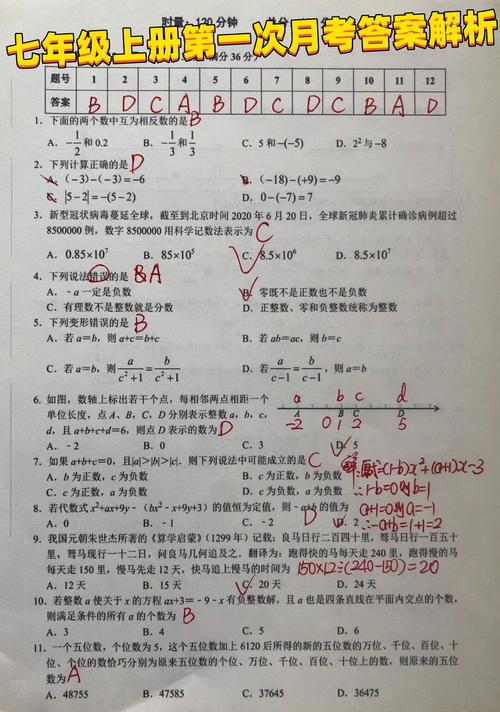 时量：120分钟
七年级上册第一次月考答案解析
满分36分）
题号 1 2 3 4 5 6 7 8 9 10 11 12
答案 B D C A B D C D C B A D
1. 下面的两个数中互为相反数的是 B
A. -1/2和0.2 B. -1/3和1/3 C. 5和-(-5) D. 2²与-8
2. 下列计算正确的是 D
A. (-3)-(-3)=-6 B. (-18)-(+9)=-9
C. |5-2|=-(5-2) D. 0-(-7)=7
3. 新型冠状病毒蔓延全球，截至到北京时间2020年6月20日，全球新冠肺炎累计确诊病例超过
8500000例，数字8500000用科学记数法表示为 C
A. 0.85×10⁷ B. 85×10⁵ C. 8.5×10⁶ D. 8.5×10⁷
4. 下列说法错误的是 A
A. -a一定是负数 B. 零既不是正数也不是负数
C. 有理数不是整数就是分数 D. 正整数、零和负整数统称为整数
5. 下列变形错误的是 B
A. 若a=b，则a+c=b+c B. 若ab=ac，则b=c
C. 若a=b，则a/(c²+1)=b/(c²+1) D. 若a/(c-1)=b/(c-1)，则a=b
6. 如图，数轴上标出若干个点，每相邻两点相距一个
a b c d
单位长度，点A、B、C、D分别表示整数a，b，c，
A B C D
-2 0 1 2 5
d，且a+b+c+d=6，则点D表示的数为 D
A. -2 B. 0 C. 3 D. 5
7. 如果a+b+c=0，且|a|>|b|>|c|．则下列说法中可能成立的是 C
A. b为正数，c为负数 B. c为正数，b为负数
C. c为正数，a为负数 D. c为负数，a为负数
解：原式=(1-b)x²+(a+1)x-3
∴1-b=0则b=1
a+1=0则a=-1
∴-a+b=1+1=2
8. 若代数式x²+ax+9y-（bx²-x+9y+3）的值恒为定值，则-a+b的值为 D
A. 0 B. -1 C. -2 D. 2
9. 我国元朝朱世杰所著的《算学启蒙》（1299年）记载：良马日行二百四十里，驽马日行一百五十
里，驽马现行一十二日，问良马几何追及之．翻译为：跑得快的马每天走240里，跑得慢的马
每天走150里，慢马先走12天，快马追上慢马的时间为 150×12÷(240-150)=20
A. 12天 B. 15天 C. 20天 D. 24天
10. 若整数a使关于x的方程ax+3=-9-x有负整数解，且a也是四条直线在平面内交点的个数，
则满足条件的所有a的个数为 B
A. 3 B. 4 C. 5 D. 6
11. 一个五位数，个位数为5，这个五位数加上6120后所得的新的五位数的万位、千位、百位、十
位、个位的数恰巧分别为原来五位数的个位、万位、千位、百位、十位上的数，则原来的五位
数为 A
A. 48755 B. 47585 C. 37645 D. 36475